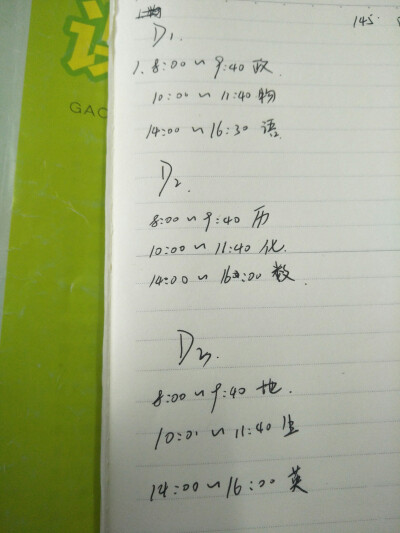 145
D1.
1. 8:00~9:40 政.
10:00~11:40 物
14:00~16:30 语
D2.
8:00~9:40 历
10:00~11:40 化.
14:00~16:00 数.
D3.
8:00~9:40 地.
10:00~11:40 生
14:00~16:00 英
GAO